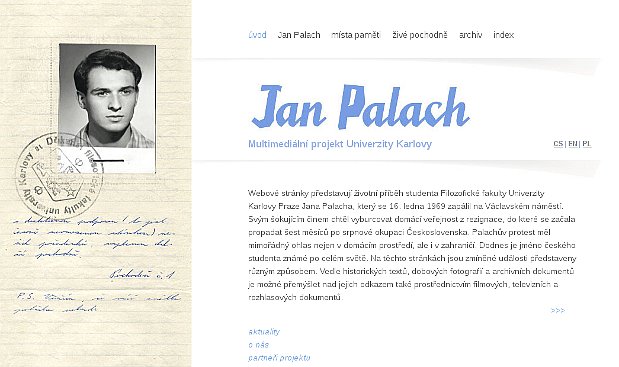 úvod Jan Palach místa paměti živé pochodně archiv index
Jan Palach
Multimediální projekt Univerzity Karlovy
CS | EN | PL
Webové stránky představují životní příběh studenta Filozofické fakulty Univerzity
Karlovy Praze Jana Palacha, který se 16. ledna 1969 zapálil na Václavském náměstí.
Svým šokujícím činem chtěl vyburcovat domácí veřejnost z rezignace, do které se začala
propadat šest měsíců po srpnové okupaci Československa. Palachův protest měl
mimořádný ohlas nejen v domácím prostředí, ale i v zahraničí. Dodnes je jméno českého
studenta známé po celém světě. Na těchto stránkách jsou zmíněné události představeny
různým způsobem. Vedle historických textů, dobových fotografií a archivních dokumentů
je možné přemýšlet nad jejich odkazem také prostřednictvím filmových, televizních a
rozhlasových dokumentů.
>>>
aktuality
o nás
partneři projektu
Děkanát filosofické fakulty university Karlovy
Pochodeň č. 1
P.S.